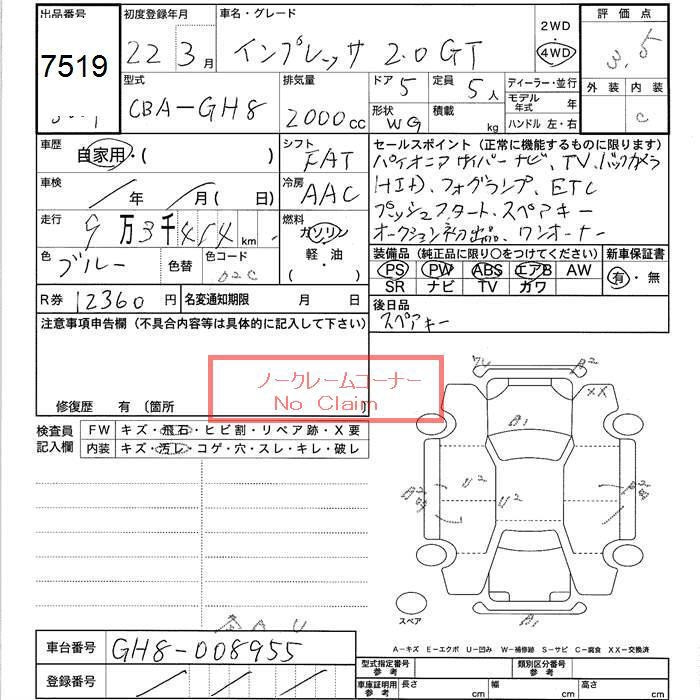 出品番号 初度登録年月 車名・グレード 2WD 評価点
7519 22 3月 インプレッサ 2.0GT 4WD 3.5
型式 排気量 ドア 5 定員 5人 ディーラー・並行 外装 内装
CBA-GH8 2000cc モデル年式 年 C
形状 WG 積載 kg ハンドル 左・右
車歴 シフト セールスポイント (正常に機能するものに限ります)
自家用・( ) FAT パイオニア サイバーナビ、TV、バックカメラ
車検 年 月( 日) 冷房 AAC HID、フォグランプ、ETC
プッシュスタート、スペアキー
走行 9万3千414km 燃料 ガソリン オークション初出品、ワンオーナー
色 ブルー 色替 色コード 02C 軽・油 ( )
装備品 (純正品に限り○をつけてください) 新車保証書
PS PW ABS エアB AW 有・無
SR ナビ TV カワ
R券 12360円 名変通知期限 月 日 後日品
スペアキー
注意事項申告欄 (不具合内容等は具体的に記入して下さい)
ノークレームコーナー
No Claim
修復歴 有 〔箇所 〕
検査員記入欄 FW キズ・飛石・ヒビ割・リペア跡・X要
内装 キズ・汚レ・コゲ・穴・スレ・キレ・破レ
B2
XX
B1
U2 U2
B2
B1
スペア
A-キズ E-エクボ U-凹み W-補修跡 S-サビ C-腐食 XX-交換済
車台番号 GH8-008955
型式指定番号 参考 類別区分番号 参考
登録番号 車庫証明用 参考 長さ cm 幅 cm 高さ cm